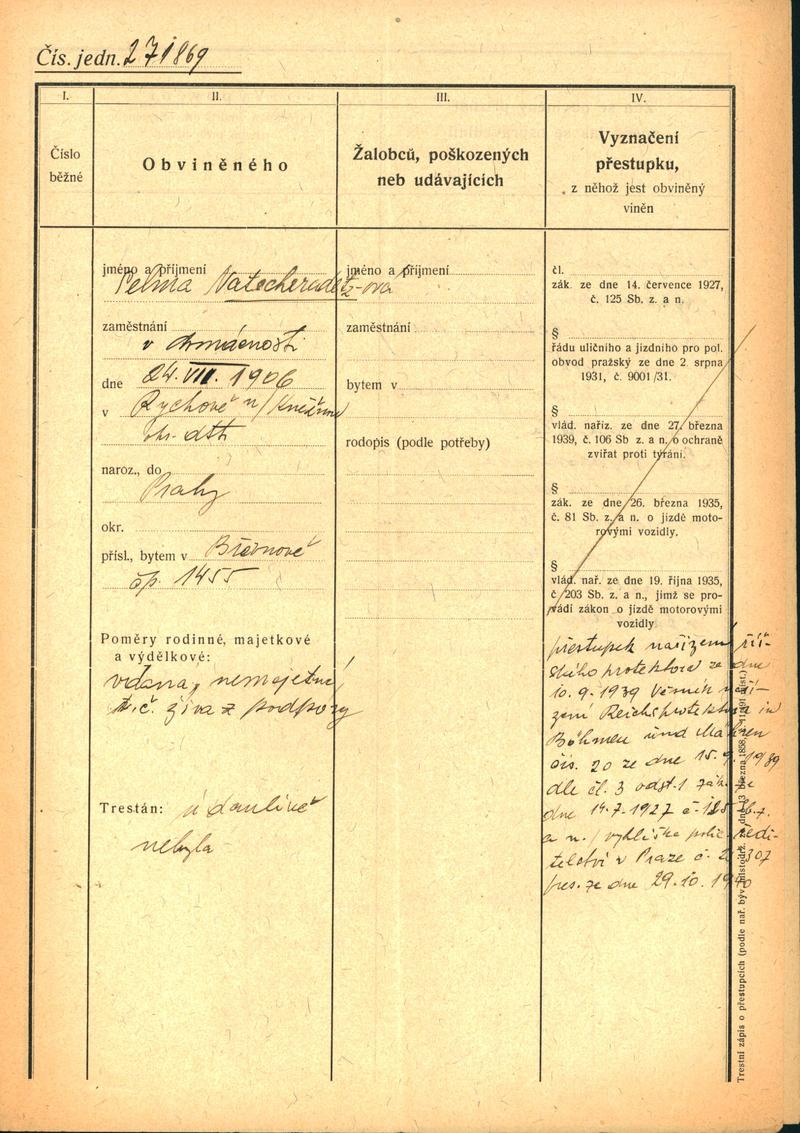 Čís. jedn. 271869
I.
II.
III.
IV.
Číslo
běžné
Obviněného
Žalobců, poškozených
neb udávajících
Vyznačení
přestupku,
z něhož jest obviněný
viněn
jméno a příjmení
zaměstnání
v domácnosti
dne 24. VIII. 1906
v Rychově n/
naroz., do
Prahy
okr.
přísl., bytem v Břevnově
čp. 1455
Poměry rodinné, majetkové
a výdělkové:
vdaná, nemajetná,
t. č. živa z podpory
Trestán: údanlivě
nebyla
jméno a příjmení
zaměstnání
bytem v
rodopis (podle potřeby)
čl.
zák. ze dne 14. července 1927,
č. 125 Sb. z. a n.
§
řádu uličního a jízdního pro pol.
obvod pražský ze dne 2. srpna
1931, č. 9001/31.
§
vlád. naříz. ze dne 27. března
1939, č. 106 Sb z. a n. o ochraně
zvířat proti týrání.
§
zák. ze dne 26. března 1935,
č. 81 Sb. z. a n. o jízdě moto-
rovými vozidly.
§
vlád. nař. ze dne 19. října 1935,
č 203 Sb. z. a n., jímž se pro-
vádí zákon o jízdě motorovými
vozidly
přestupek nařízení říš-
ského protektora ze dne
10. 9. 1939 Věstník naří-
zení Reichsprotektora in
Böhmen und Mähren
čís. 20 ze dne 15. 9. 1939
dle čl. 3 odst. 1 zák. ze
dne 14. 7. 1927 č. 125 Sb. z.
a n. / vyhláška polic. ředi-
telství v Praze č.
pres. ze dne 29. 10. 1940
Trestní zápis o přestupcích (podle nař. býv. místodrž. ze dne 3 března 1858,